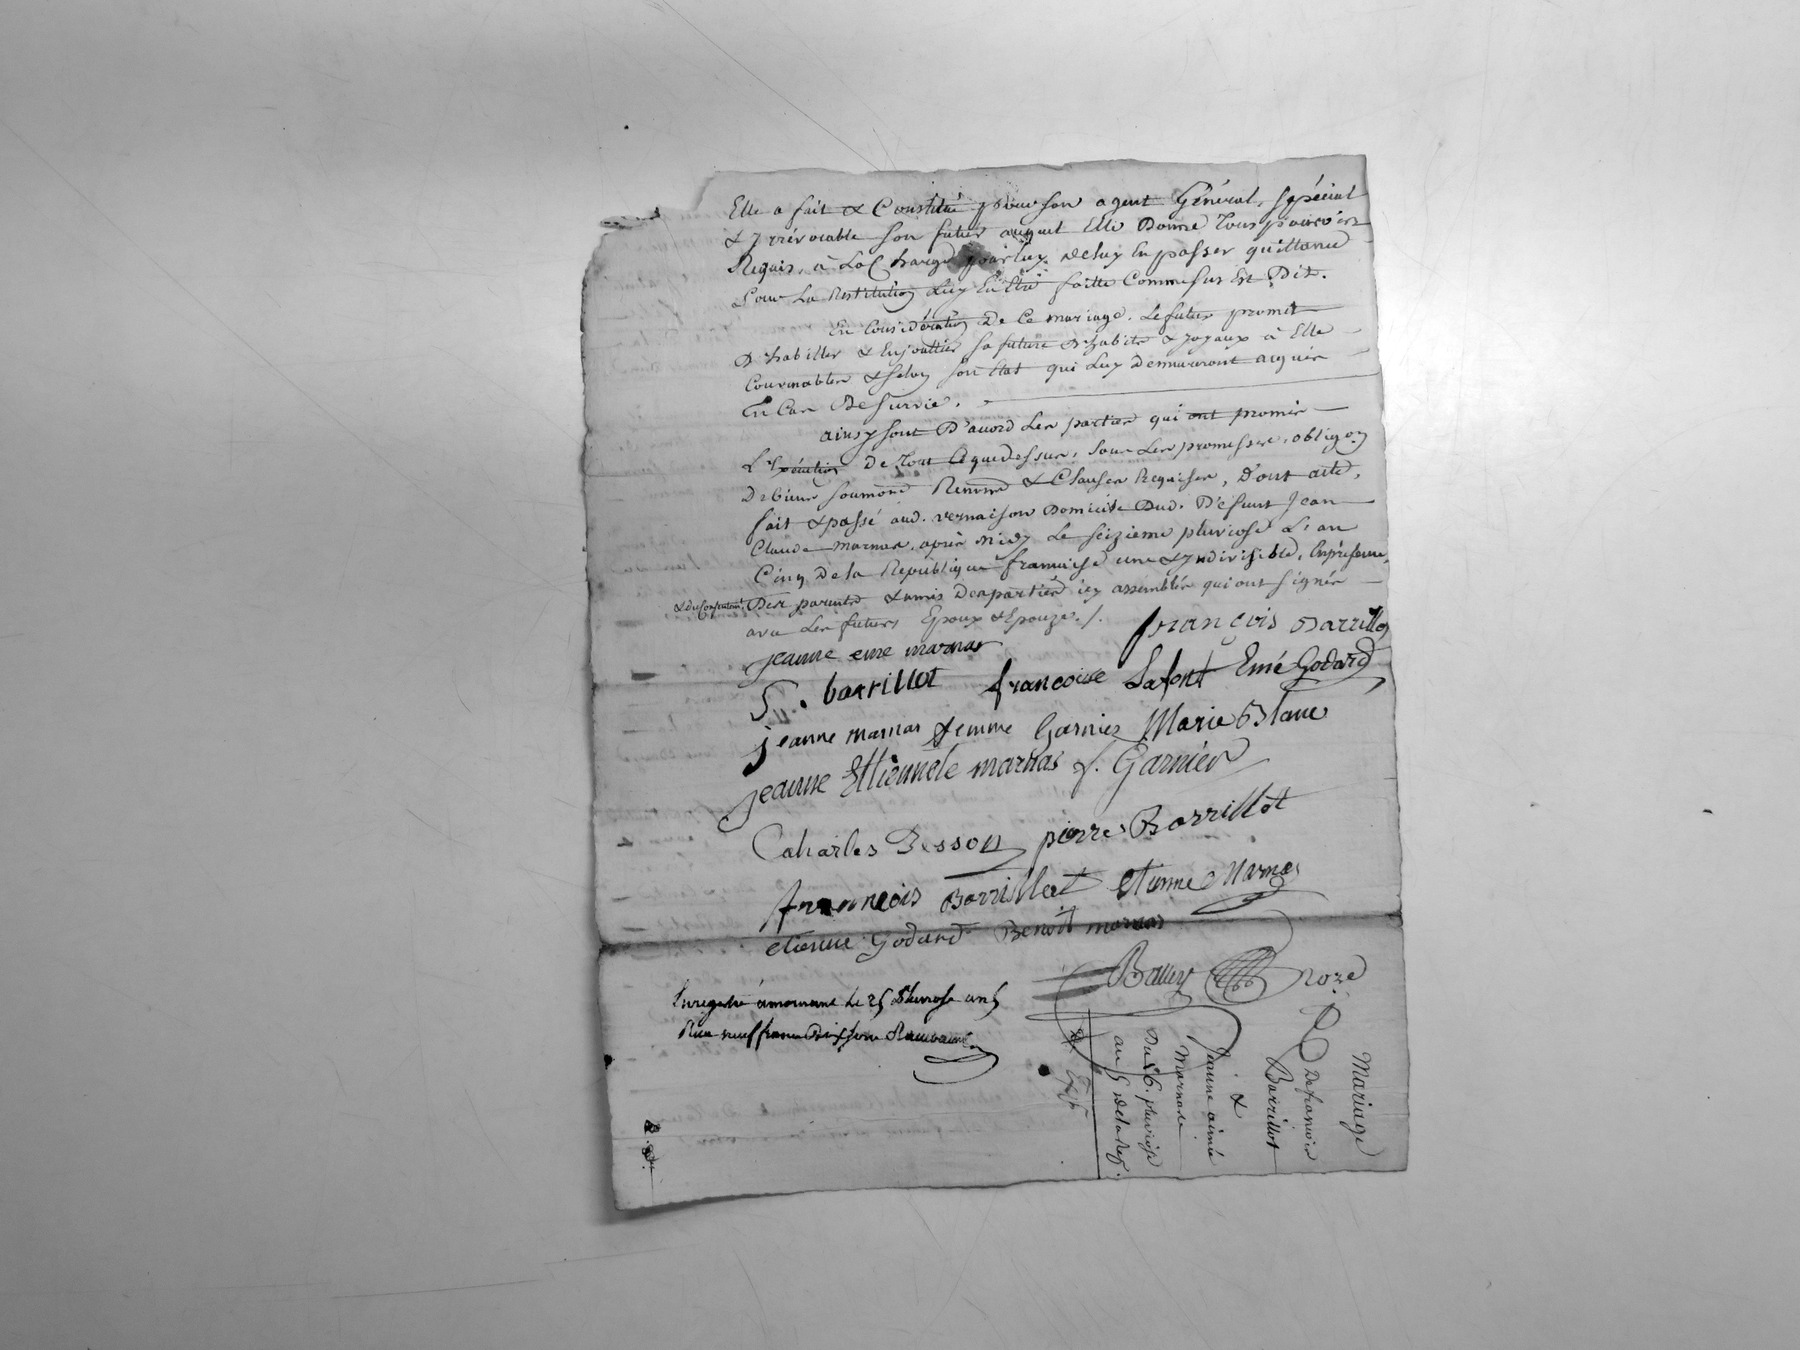 Elle a fait & Constitué pour son agent Général, Spécial
& Yrrévocable son futur auquel Elle Donne Tous pouvoirs
Requis, à La Charge pour luy de luy En passer quittance
pour La Restitution luy En Etre faitte Comme sus Est Dit.
En Considération De Ce mariage. Le futur promet
D'habiller & Enjoaillier sa future d'habits & Joyaux à Elle
Convenables & selon son Etat qui Luy Demeureront acquis
En Cas De survie.
ainsy sont D'acord Les parties qui ont promis
L'Exécution De Tout Ce que dessus, sous Les promesses, obligon
De biens soumons Renonc & Clauses Requises, D'ont acte,
fait & passé aud. vernaison Domicile Dud. Défunt Jean
Claude Marnas, après Midy Le Seizieme pluviose L'an
Cinq De la République francaise une & Yndivisible, En présence,
& du Consentemt Des parents & amis Des parties icy assemblés qui ont signés
avec Les futurs Epoux & Epouze ./.
jeanne eme marnas françois Barrillot
barrillot francoise Lafont Emé Godard
jeanne marnas femme Garnier Marie Blanc
jeanne Ettiennete marnas f. Garnier
Caharles Besson pierre Barrillot
francois Barrillot etienne Marnas
etienne Godard Benoit marnas
Roze
Enregistré a mornant le 25 Pluviose an 5
Recu neuf francs
Mariage
De francois
Barrillot
&
Jeanne aimée
Marnas
Du 16. pluviose
an 5 de la Rep.